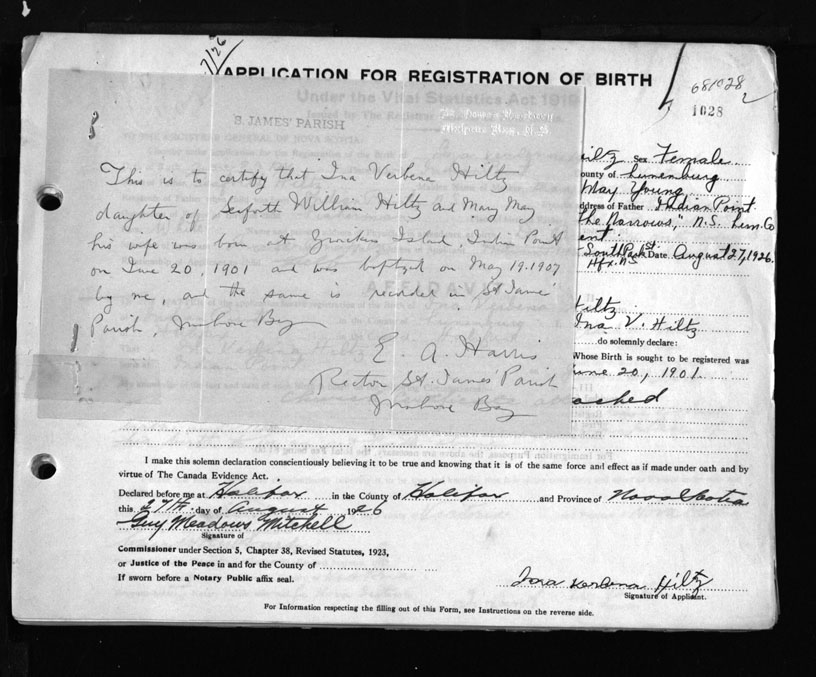 7/26
APPLICATION FOR REGISTRATION OF BIRTH
681028
2
1028
Under the Vital Statistics Act 1919
S. JAMES' PARISH
This is to certify that Ina Verbena Hiltz
daughter of Seaforth William Hiltz and Mary May
his wife was born at Island, Indian Point
on June 20, 1901 and was baptized on May 19. 1907
by me, and the same is recorded in St. James'
Parish, Mahone Bay
E. A. Harris
Rector St. James' Parish
Mahone Bay
iltz Sex Female
ounty of Lunenburg
May Young
ddress of Father Indian Point
"The Narrows," N.S. Lun. Co
ent
South Park St. Date August 27, 1926.
Hfx. N.S.
AFFIDAV
Hiltz
Ina V. Hiltz
do solemnly declare:
Whose Birth is sought to be registered was
June 20, 1901.
ached
I make this solemn declaration conscientiously believing it to be true and knowing that it is of the same force and effect as if made under oath and by
virtue of The Canada Evidence Act.
Declared before me at Halifax in the County of Halifax and Province of Nova Scotia
this 27th day of August 1926
Guy Meadows Mitchell
Signature of
Commissioner under Section 5, Chapter 38, Revised Statutes, 1923,
or Justice of the Peace in and for the County of
If sworn before a Notary Public affix seal.
Ina Verbena Hiltz
Signature of Applicant.
For Information respecting the filling out of this Form, see Instructions on the reverse side.